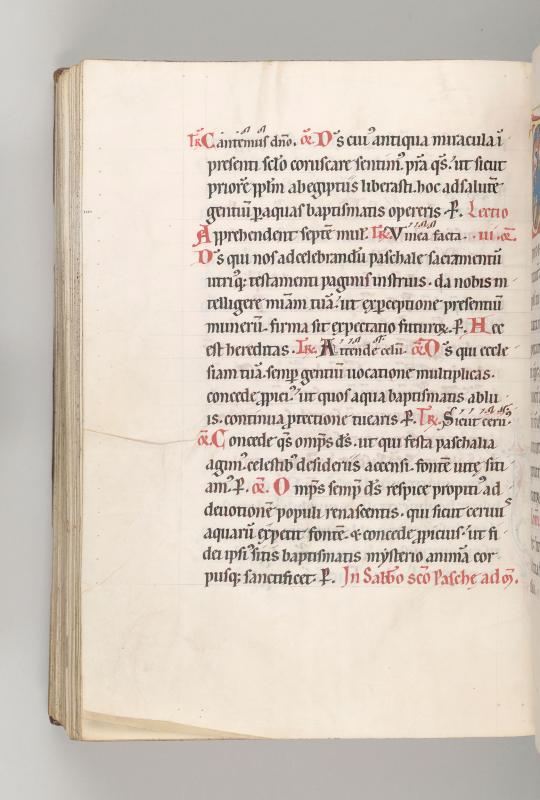 Tr̄. Cantem⁹ dn̄o. or̄. D̄s cui⁹ antiqua miracula ī
presenti sclō coruscare sentim⁹. p̄ra q̄s. ut sicut
priorē pplm̄ ab egiptiis liberasti. hoc ad salutē
gentiū p aquas baptismatis opereris. P̄. Lectio
Apprehendent septē mul. Tr̄. Vinea facta. iii. or̄.
D̄s qui nos ad celebrandū paschale sacramentū
utriq; testamenti paginis instruis. da nobis in
telligere miam̄ tuā. ut ex perceptione presentiū
munerū. firma sit expectatio futuroꝝ. P̄. Hec
est hereditas. Tr̄. Attende celū. or̄. D̄s qui eccle
siam tuā. semp gentiū uocatione multiplicas.
concede ppici⁹. ut quos aqua baptismatis ablu
is. continua ptectione tuearis. P̄. Tr̄. Sicut ceru⁹.
or̄. Concede q̄s omps̄ d̄s. ut qui festa paschalia
agim⁹ celestib⁹ desideriis accensi. fontē uitę siti
am⁹. P̄. or̄. Omps̄ semp d̄s respice propiti⁹ ad
deuotionē populi renascentis. qui sicut ceruus
aquarū expetit fontē. & concede ppicius. ut fi
dei ipsi⁹ sitis baptismatis mysterio animā cor
pusq; sanctificet. P̄. In Sabb̄o scō Paschę ad oꝝ.